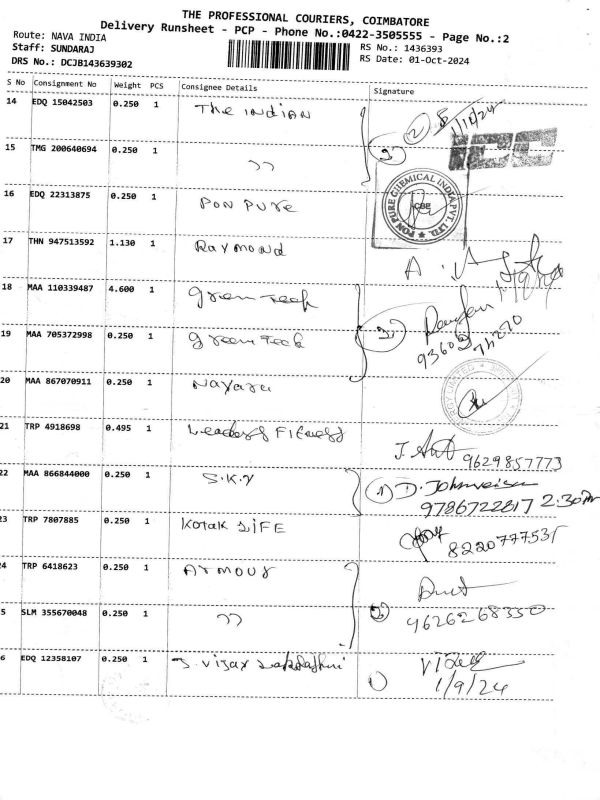 THE PROFESSIONAL COURIERS, COIMBATORE
Delivery Runsheet - PCP - Phone No.:0422-3505555 - Page No.:2
Route: NAVA INDIA
Staff: SUNDARAJ
DRS No.: DCJB143639302
RS No.: 1436393
RS Date: 01-Oct-2024
S No Consignment No Weight PCS Consignee Details Signature
14 EDQ 15042503 0.250 1 The INDIAN
15 TMG 200640694 0.250 1 ”
ICC
16 EDQ 22313875 0.250 1 PON PURE
PON PURE CHEMICAL INDIA PVT. LTD.
CBE
17 THN 947513592 1.130 1 Raymond
18 MAA 110339487 4.600 1 green Tech
19 MAA 705372998 0.250 1 green Teck
20 MAA 867070911 0.250 1 Nayara
21 TRP 4918698 0.495 1 Leaders Fitness
9629857773
22 MAA 866844000 0.250 1 S.K.Y
1 D.
9786722817 2:30
23 TRP 7807885 0.250 1 KOTAK LIFE
8220777535
24 TRP 6418623 0.250 1 Armour
2
5 SLM 355670048 0.250 1 ”
9626268350
6 EDQ 12358107 0.250 1 Vijay
1
1/9/24